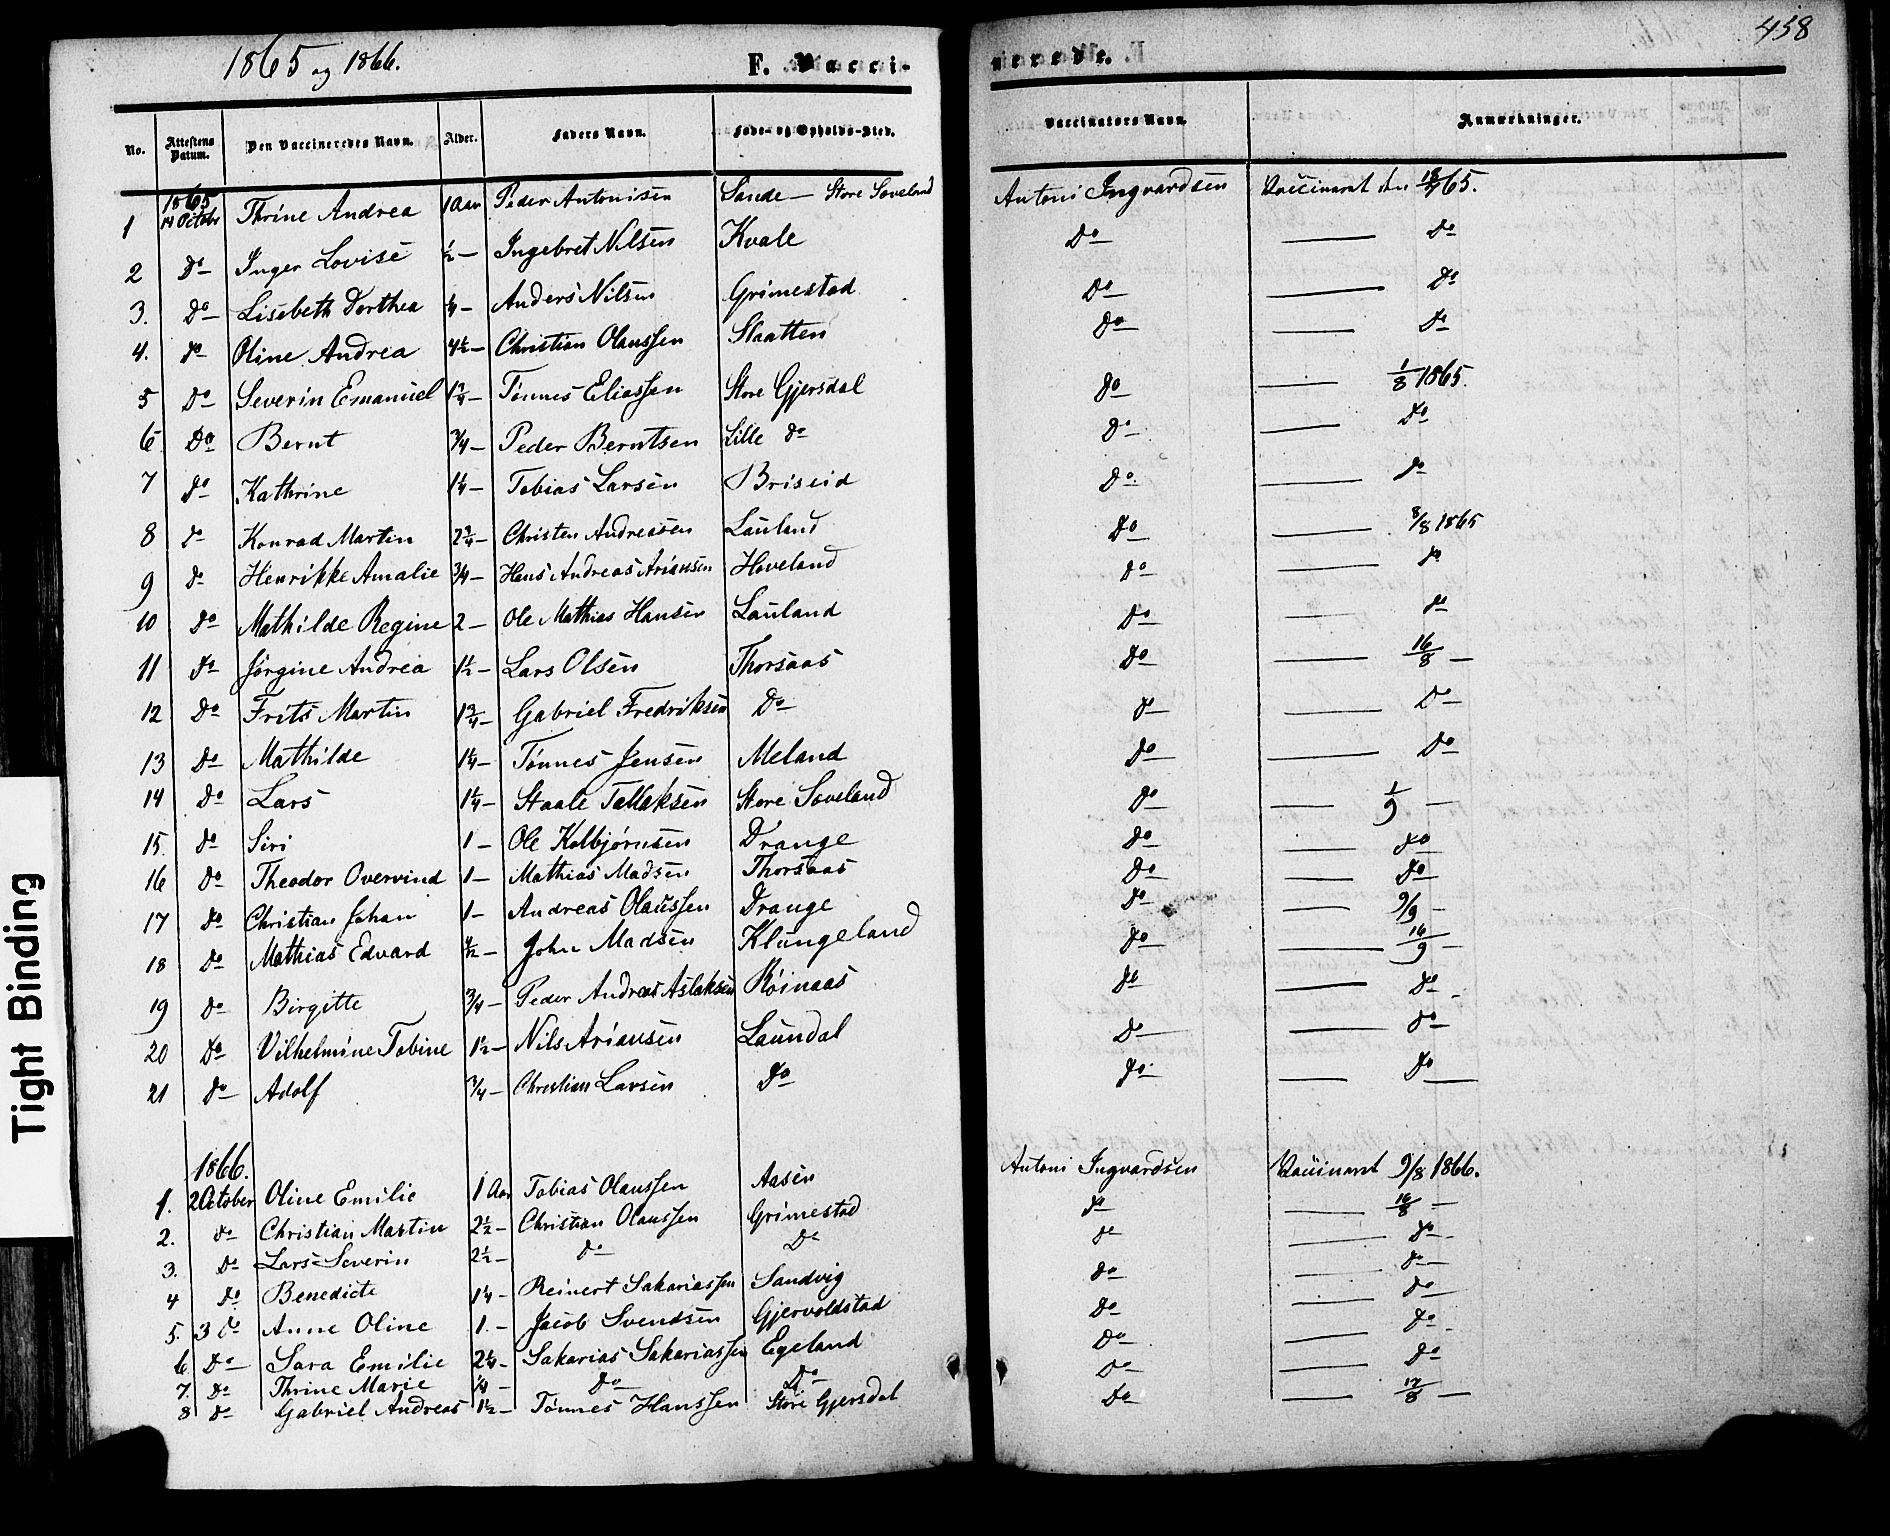 1865 og 1866.
F. Vacci-
nerede.
458
No. Attestens Datum. Den Vaccineredes Navn. Alder. Faders Navn. Føde- og Opholds-Sted. Vaccinators Navn. Anmærkninger.
1865
1 14 Octobr Thrine Andrea 1 Aar Peder Antonisen Sande — Store Soveland Antoni Ingvardsen Vaccineret den 18/7 65.
2 Do Inger Lovise ½ — Ingebret Nilsen Kvale Do — Do
3. Do Lisebeth Dorthea ¼ — Anders Nilsen Grimestad Do — Do
4. Do Oline Andrea 4½ — Christian Olaussen Slaatten Do — Do
5 Do Severin Emanuel 1¾ — Tønnes Eliassen Store Gjersdal Do — 1/8 1865.
6 Do Bernt ¾ — Peder Berntsen Lille Do Do — Do
7 Do Kathrine 1¼ — Tobias Larsen Briseid Do — Do
8 Do Konrad Martin 2¾ — Christen Andreasen Lauland Do — 8/8 1865
9 Do Henrikke Amalie ¾ — Hans Andreas Ariansen Hoveland Do — Do
10 Do Mathilde Regine 2 — Ole Mathias Hansen Lauland Do — Do
11 Do Jørgine Andrea 1½ — Lars Olsen Thorsaas Do — 16/8 —
12 Do Frits Martin 1¾ — Gabriel Fredriksen Do Do — Do
13 Do Mathilde 1¼ — Tønnes Jensen Meland Do — Do
14 Do Lars 1¼ — Staale Tallaksen Store Soveland Do — 1/9 —
15. Do Siri 1 — Ole Kolbjørnsen Drange Do — Do
16 Do Theodor Overvind 1 — Mathias Madsen Thorsaas Do — Do
17 Do Christian Johan 1 — Andreas Olaussen Drange Do — 9/9 —
18 Do Mathias Edvard ½ — John Madsen Klungeland Do — 16/9 —
19 Do Birgitte ¾ — Peder Andreas Aslaksen Røinaas Do — Do
20 Do Vilhelmine Tobine 1½ — Nils Ariansen Laundal Do — Do
21 Do Adolf ¾ — Christian Larsen Do Do — Do
1866.
1. 2 October Oline Emilie 1 Aar Tobias Olaussen Aasen Antoni Ingvardsen Vaccineret 9/8 1866.
2. Do Christian Martin 2½ — Christian Olaussen Grimestad Do — 16/8 —
3. Do Lars Severin 2½ — Do Do Do — Do
4 Do Benedicte 1¼ — Reinert Sakariassen Sandvig Do — Do
5. 3 Do Anne Oline 1. — Jacob Svendsen Gjervoldstad Do — Do
6 Do Sara Emilie 2¼ — Sakarias Sakariassen Egeland Do — Do
7. Do Thrine Marie ¼ — Do Do Do — Do
8 Do Gabriel Andreas 1½ — Tønnes Hanssen Store Gjersdal Do — 17/8 —
Tight Binding